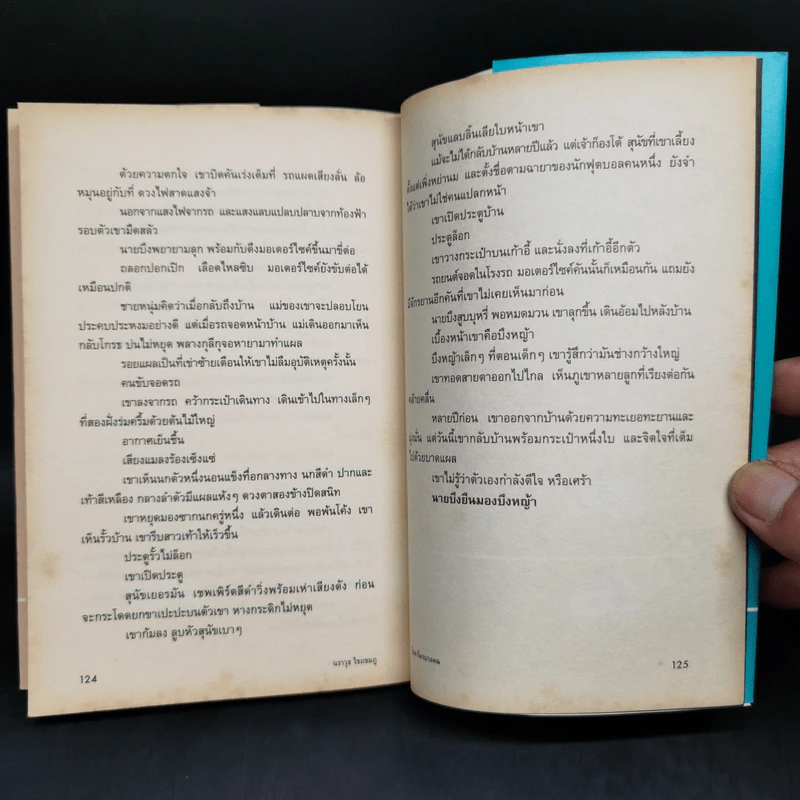 ด้วยความตกใจ เขาบิดคันเร่งเต็มที่ รถแผดเสียงลั่น ล้อ
หมุนอยู่กับที่ ดวงไฟสาดแสงจ้า
นอกจากแสงไฟจากรถ และแสงแลบแปลบปลาบจากท้องฟ้า
รอบตัวเขามืดสลัว
นายบึงพยายามลุก พร้อมกับดึงมอเตอร์ไซค์ขึ้นมาขี่ต่อ
ถลอกปอกเปิก เลือดไหลซิบ มอเตอร์ไซค์ยังขับต่อได้
เหมือนปกติ
ชายหนุ่มคิดว่าเมื่อกลับถึงบ้าน แม่ของเขาจะปลอบโยน
ประคบประหงมอย่างดี แต่เมื่อรถจอดหน้าบ้าน แม่เดินออกมาเห็น
กลับโกรธ บ่นไม่หยุด พลางกุลีกุจอหายามาทำแผล
รอยแผลเป็นที่เข่าซ้ายเตือนให้เขาไม่ลืมอุบัติเหตุครั้งนั้น
คนขับจอดรถ
เขาลงจากรถ คว้ากระเป๋าเดินทาง เดินเข้าไปในทางเล็กๆ
ที่สองฝั่งร่มครึ้มด้วยต้นไม้ใหญ่
อากาศเย็นชื้น
เสียงแมลงร้องเซ็งแซ่
เขาเห็นนกตัวหนึ่งนอนแข็งทื่อกลางทาง นกสีดำ ปากและ
เท้าสีเหลือง กลางลำตัวมีแผลแห้งๆ ดวงตาสองข้างปิดสนิท
เขาหยุดมองซากนกครู่หนึ่ง แล้วเดินต่อ พอพ้นโค้ง เขา
เห็นรั้วบ้าน เขารีบสาวเท้าให้เร็วขึ้น
ประตูรั้วไม่ล็อก
เขาเปิดประตู
สุนัขเยอรมัน เชพเพิร์ดสีดำวิ่งพร้อมเห่าเสียงดัง ก่อน
จะกระโดดยกขาเปะปะบนตัวเขา หางกระดิกไม่หยุด
เขาก้มลง ลูบหัวสุนัขเบาๆ
124
นราวุธ ไชยชมภู
สุนัขแลบลิ้นเลียใบหน้าเขา
แม้จะไม่ได้กลับบ้านหลายปีแล้ว แต่เจ้าก็องโต้ สุนัขที่เขาเลี้ยง
ตั้งแต่เพิ่งหย่านม และตั้งชื่อตามฉายาของนักฟุตบอลคนหนึ่ง ยังจำ
ได้ว่าเขาไม่ใช่คนแปลกหน้า
เขาเปิดประตูบ้าน
ประตูล็อก
เขาวางกระเป๋าบนเก้าอี้ และนั่งลงที่เก้าอี้อีกตัว
รถยนต์จอดในโรงรถ มอเตอร์ไซค์คันนั้นก็เหมือนกัน แถมยัง
มีจักรยานอีกคันที่เขาไม่เคยเห็นมาก่อน
นายบึงสูบบุหรี่ พอหมดมวน เขาลุกขึ้น เดินอ้อมไปหลังบ้าน
เบื้องหน้าเขาคือบึงหญ้า
บึงหญ้าเล็กๆ ที่ตอนเด็กๆ เขารู้สึกว่ามันช่างกว้างใหญ่
เขาทอดสายตาออกไปไกล เห็นภูเขาหลายลูกที่เรียงต่อกัน
คล้ายคลื่น
หลายปีก่อน เขาออกจากบ้านด้วยความทะเยอทะยานและ
มุ่งมั่น แต่วันนี้เขากลับบ้านพร้อมกระเป๋าหนึ่งใบ และจิตใจที่เต็ม
ไปด้วยบาดแผล
เขาไม่รู้ว่าตัวเองกำลังดีใจ หรือเศร้า
นายบึงยืนมองบึงหญ้า
125